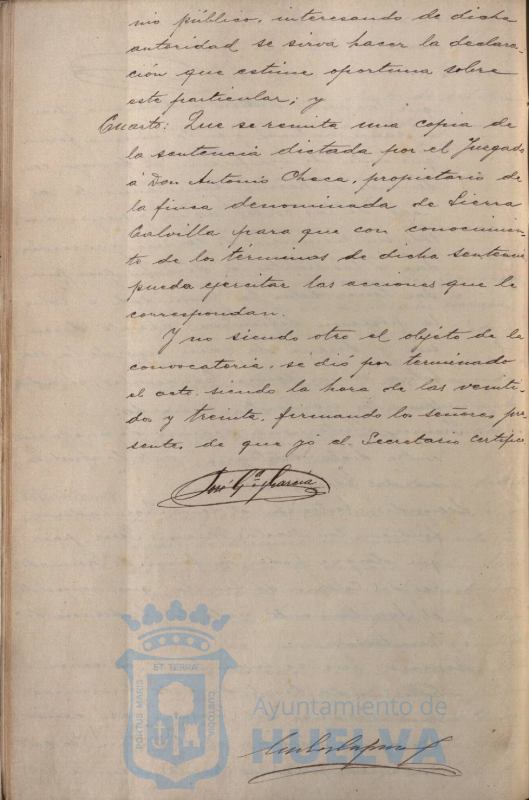 nio público, interesando de dicha
autoridad se sirva hacer la declara-
ción que estime oportuna sobre
este particular; y
Cuarto: Que se remita una copia de
la sentencia dictada por el Juzgado
á Don Antonio Checa, propietario de
la finca denominada de Sierra
Calvilla para que con conocimien-
to de los términos de dicha sentencia
pueda ejercitar las acciones que le
correspondan.
Y no siendo otro el objeto de la
convocatoria, se dió por terminado
el acto, siendo la hora de las veinti-
dos y treinta, firmando los señores pre
sente, de que yó el Secretario certifico
José Gª García
PORTUS MARIS
ET TERRÆ
CUSTODIA
Ayuntamiento de
HUELVA